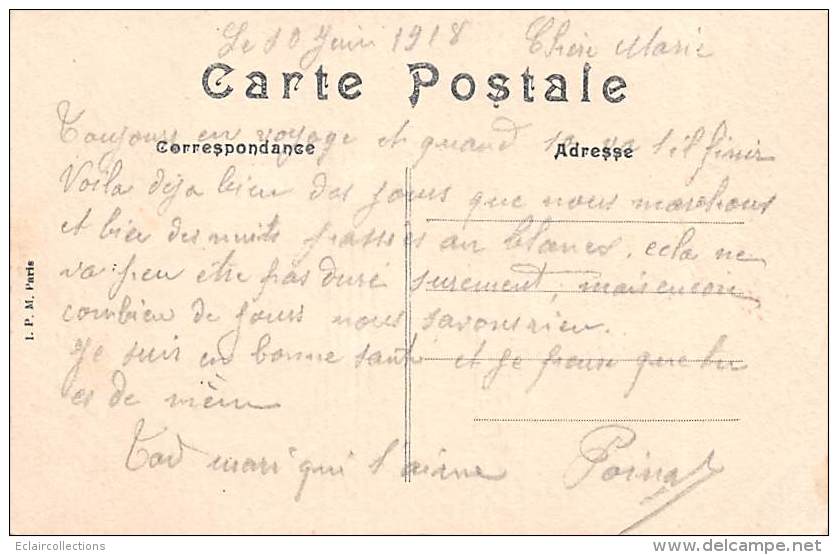 Le 10 Juin 1918 Chère Marie
Carte Postale
Toujours en voyage et quand sa va t'il finir
Correspondance Adresse
Voila déja bien des jours que nous marchons
et bien des nuits passés au blanc, cela ne
va peu être pas duré surement, mais encore
combien de jours nous savons rien.
Je suis en bonne santé et je pense que tu
es de même
Ton mari qui t'aime
I. P. M. Paris
Eclaircollections
www.delcampe.net